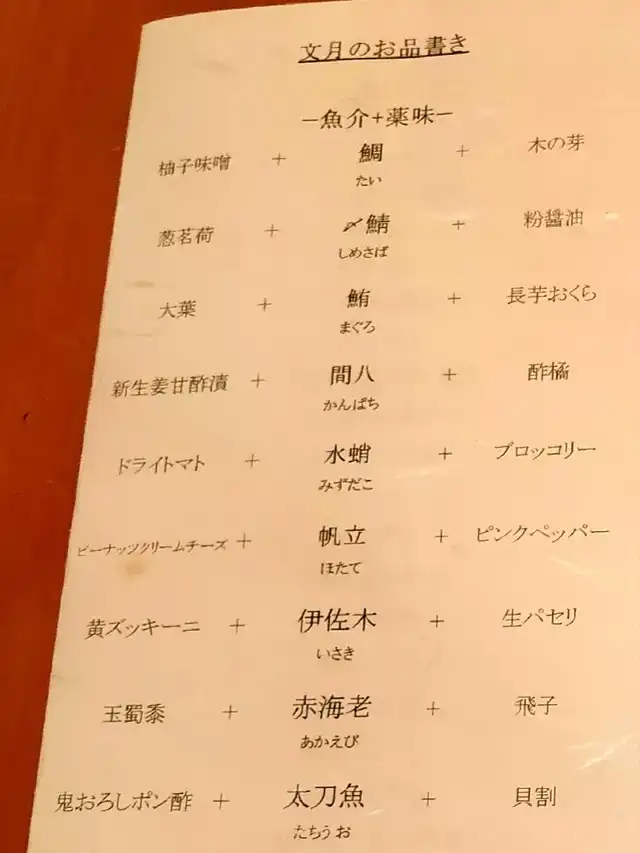 文月のお品書き
－魚介+薬味－
柚子味噌 + 鯛 + 木の芽
たい
葱茗荷 + 〆鯖 + 粉醤油
しめさば
大葉 + 鮪 + 長芋おくら
まぐろ
新生姜甘酢漬 + 間八 + 酢橘
かんぱち
ドライトマト + 水蛸 + ブロッコリー
みずだこ
ピーナッツクリームチーズ + 帆立 + ピンクペッパー
ほたて
黄ズッキーニ + 伊佐木 + 生パセリ
いさき
玉蜀黍 + 赤海老 + 飛子
あかえび
鬼おろしポン酢 + 太刀魚 + 貝割
たちうお